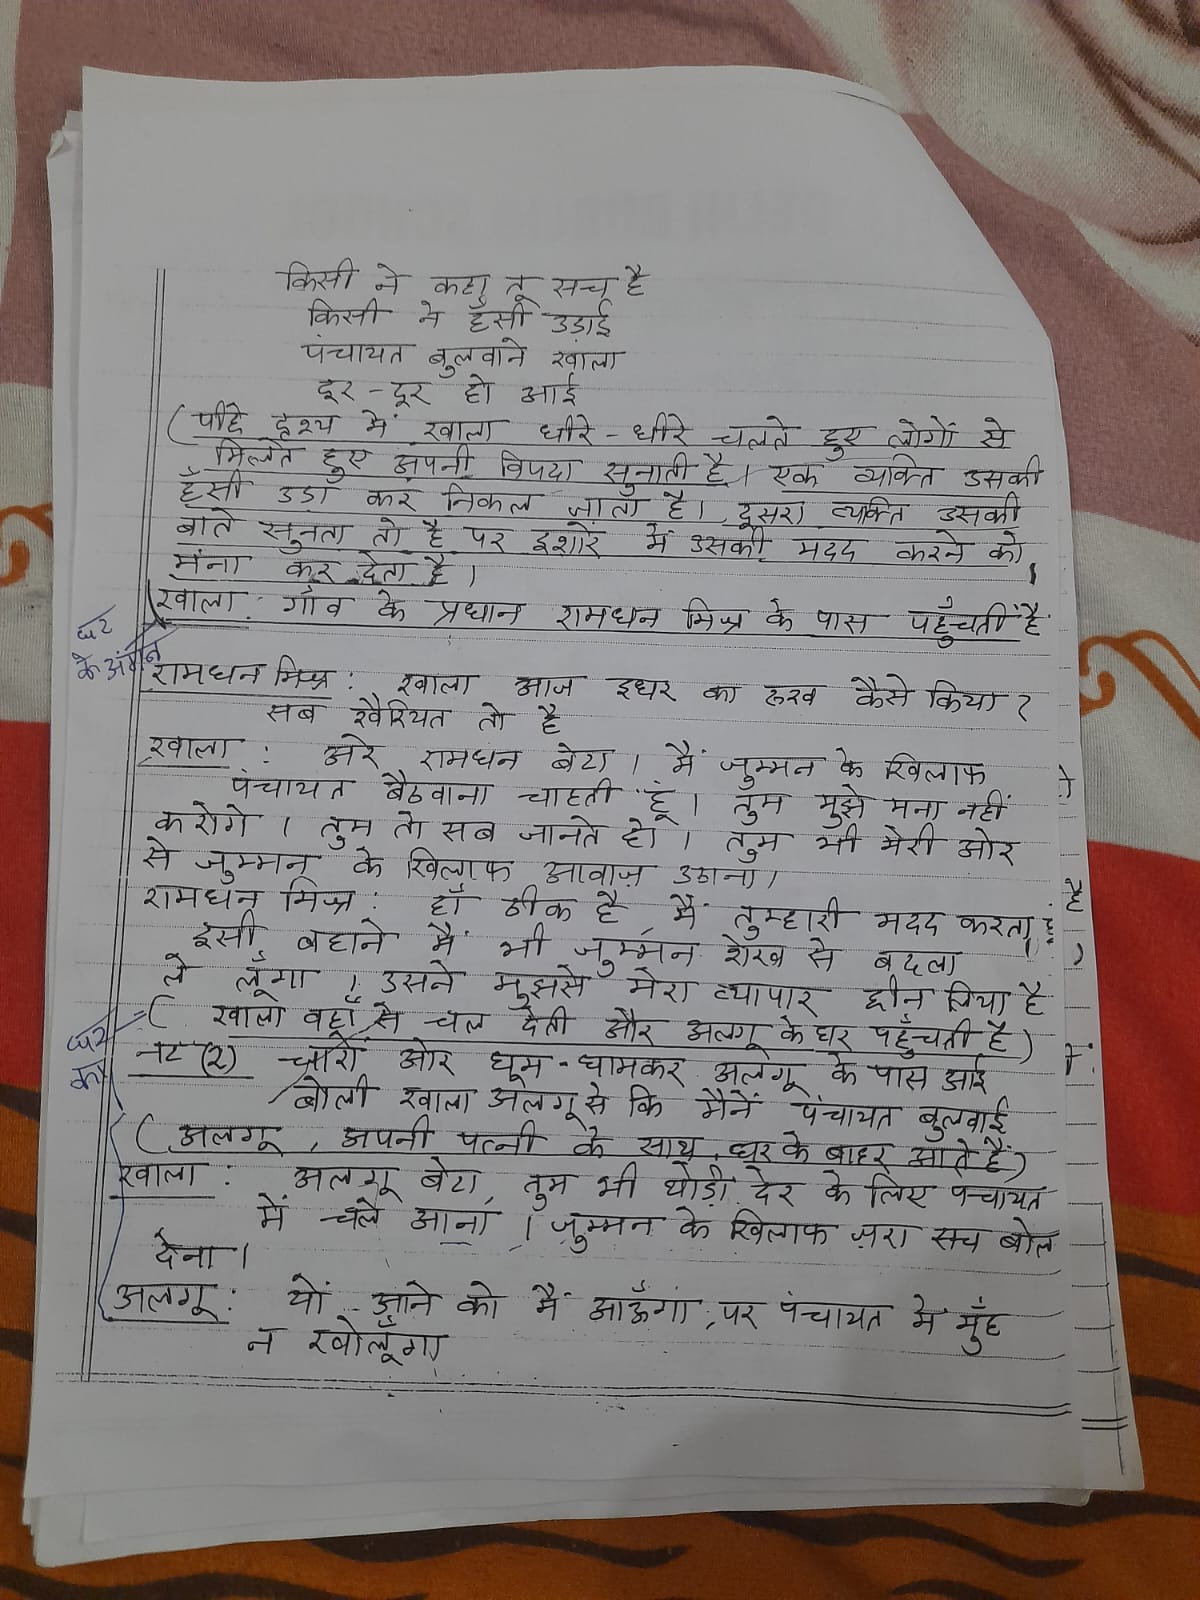 किसी ने कहा तू सच है
किसी ने हँसी उड़ाई
पंचायत बुलवाने खाला
दूर-दूर हो आई
(पीछे दृश्य में खाला धीरे-धीरे चलते हुए लोगों से
मिलते हुए अपनी विपदा सुनाती है। एक व्यक्ति उसकी
हँसी उड़ा कर निकल जाता है। दूसरा व्यक्ति उसकी
बातें सुनता तो है पर इशारे में उसकी मदद करने को
मना कर देता है।
खाला गाँव के प्रधान रामधन मिश्र के पास पहुँचतीं है
घर
के आंगन
रामधन मिश्र : खाला आज इधर का रुख कैसे किया?
सब खैरियत तो है
खाला : अरे रामधन बेटा। मैं जुम्मन के खिलाफ
पंचायत बैठवाना चाहती हूं। तुम मुझे मना नहीं
करोगे। तुम तो सब जानते हो। तुम भी मेरी ओर
से जुम्मन के खिलाफ आवाज़ उठाना।
रामधन मिश्र : हाँ ठीक है मैं तुम्हारी मदद करता हूं
इसी बहाने मैं भी जुम्मन शेख से बदला
ले लूँगा। उसने मुझसे मेरा व्यापार छीन लिया है
(खाला वहाँ से चल देती और अलगू के घर पहुँचती है)
घर
का
नट (2) चारों ओर घूम-घामकर अलगू के पास आई
बोली खाला अलगू से कि मैनें पंचायत बुलवाई
(अलगू, अपनी पत्नी के साथ घर के बाहर आते हैं)
खाला : अलगू बेटा, तुम भी थोड़ी देर के लिए पंचायत
में चले आना। जुम्मन के खिलाफ ज़रा सच बोल
देना।
अलगू : यों आने को मैं आऊँगा, पर पंचायत में मुँह
न खोलूँगा